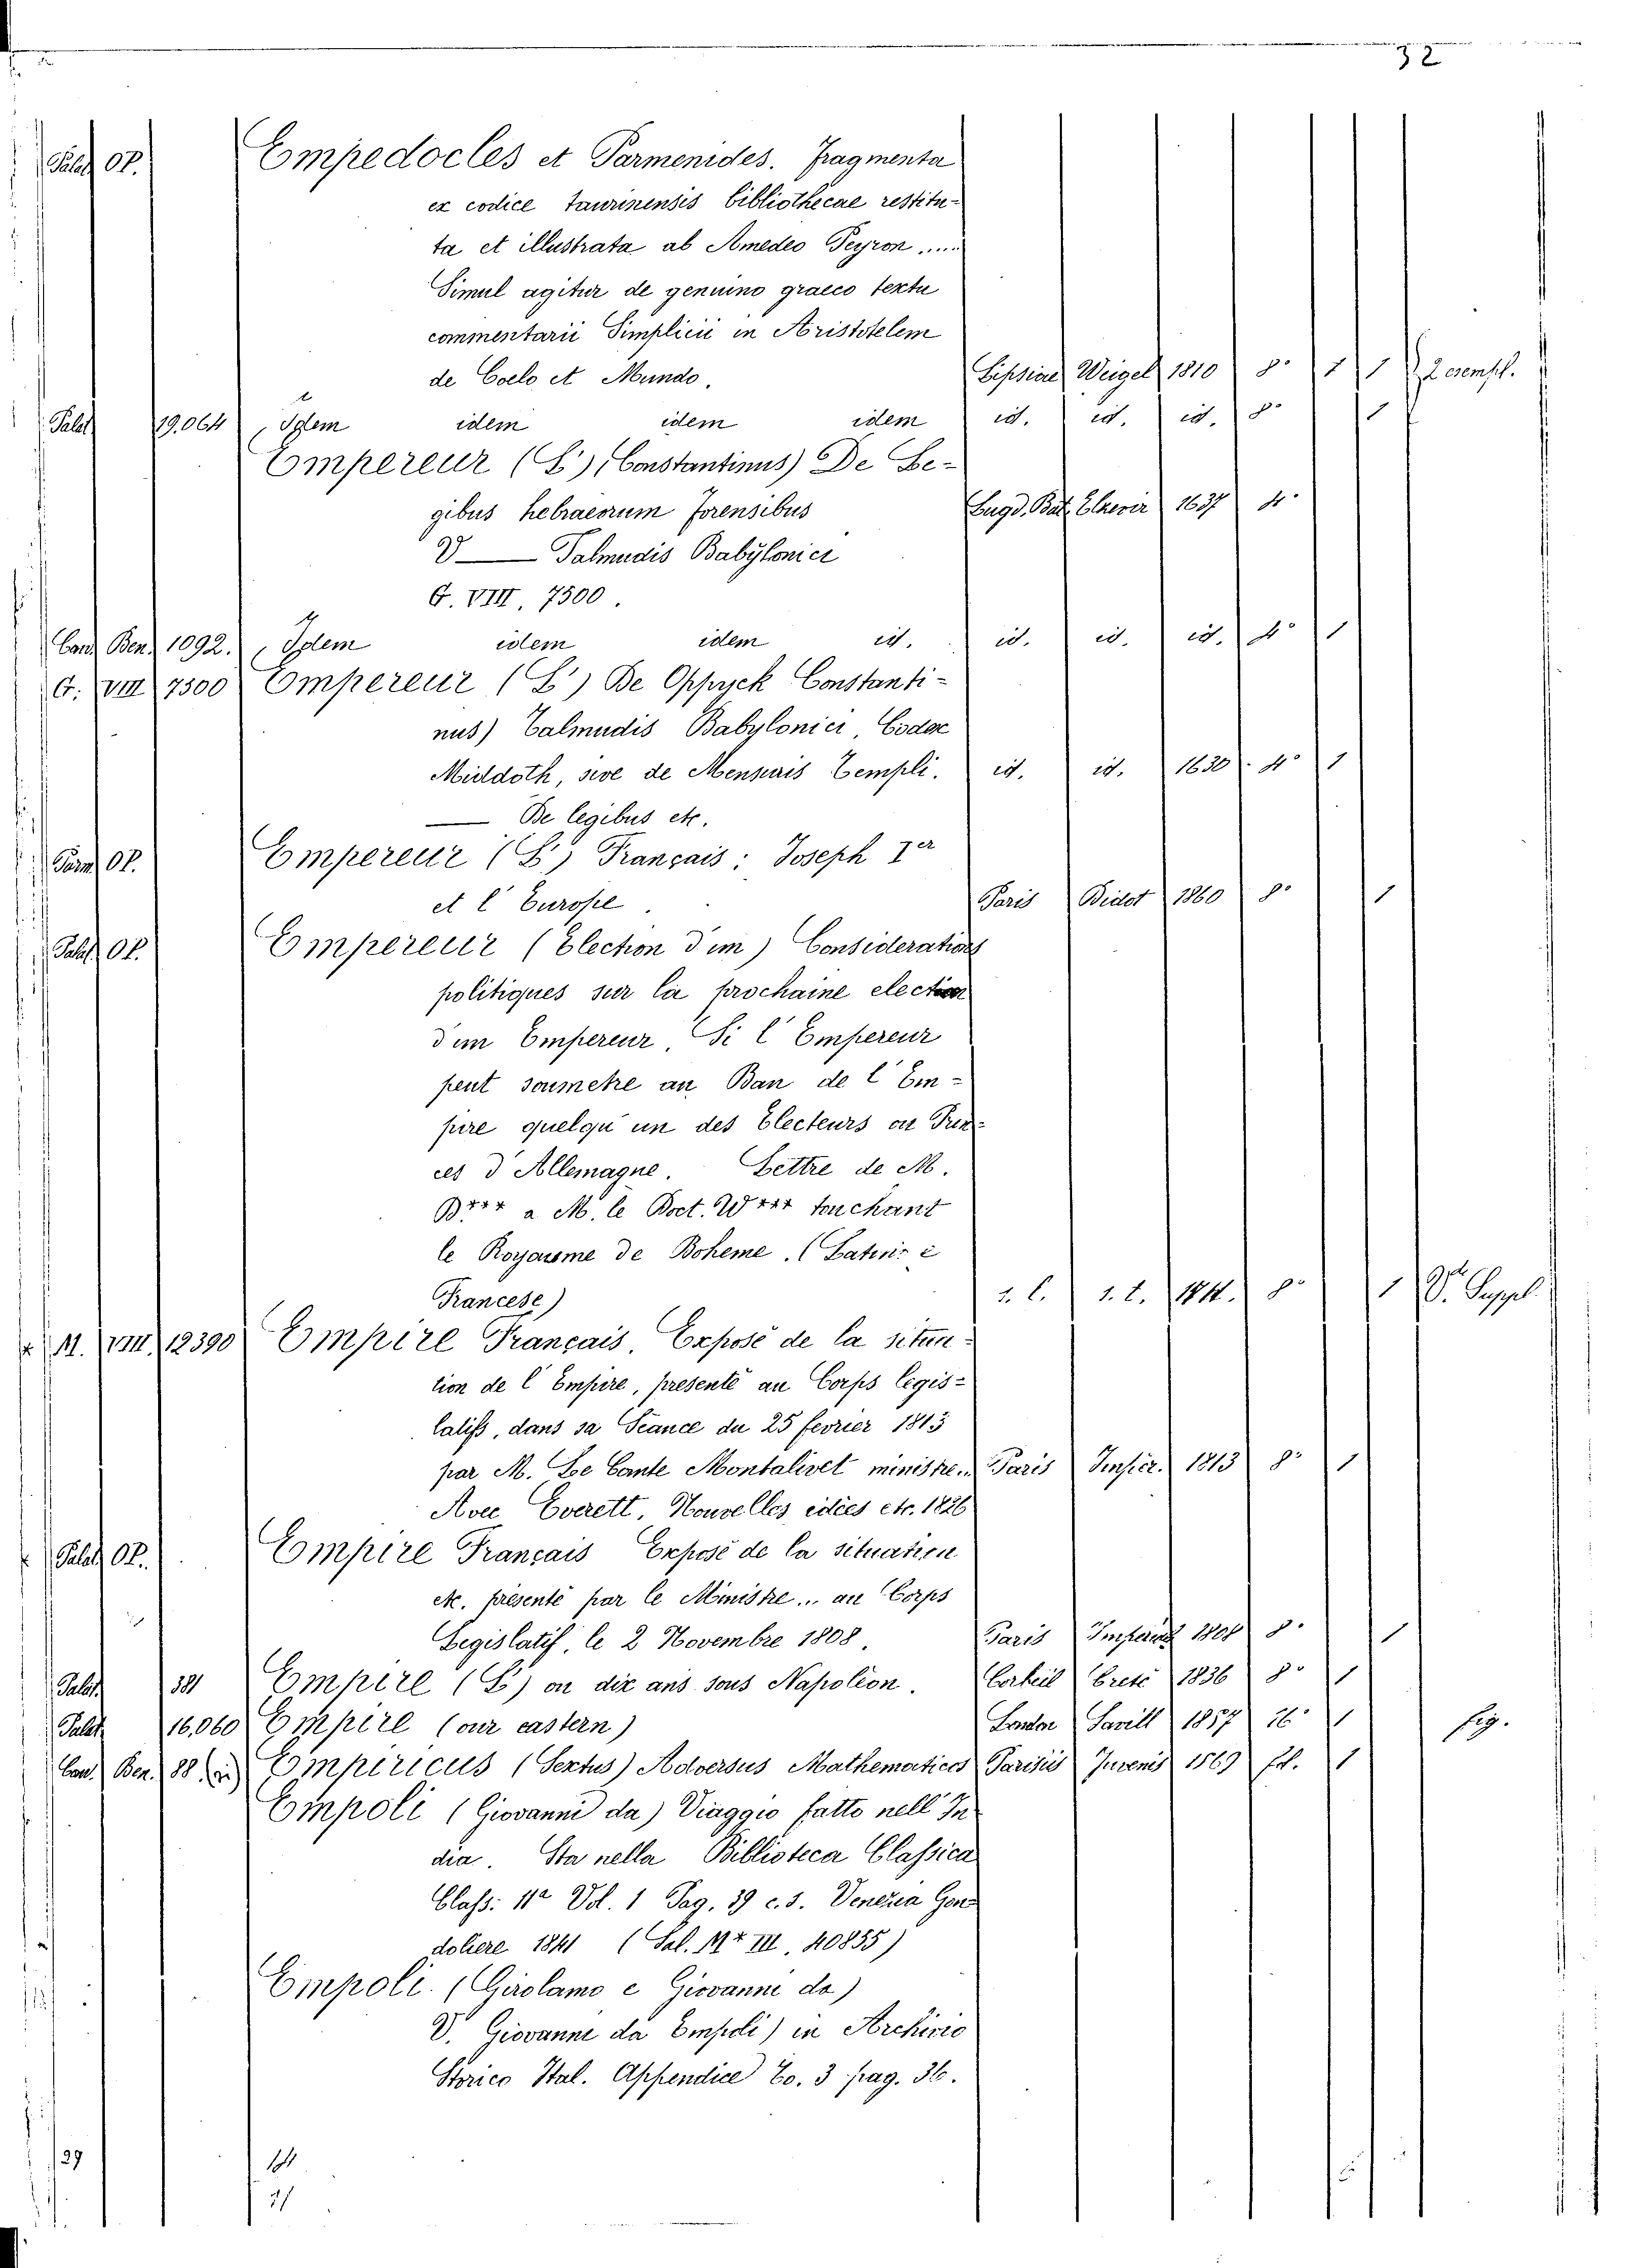 32
Palat OP. Empedocles et Parmenides. Fragmenta
ex codice taurinensis bibliothecae restitu-
ta et illustrata ab Amedeo Peyron .....
Simul agitur de genuino graeco textu
commentarii Simplicii in Aristotelem
de Coelo et Mundo. Lipsiae Weigel 1810 8° 1 1 2 esempl.
Palat 19.064 , Idem idem idem idem id. id. id. 8° 1
Empereur (L'), Constantinus) De Le-
gibus hebraeorum forensibus Lugd. Bat. Elzevir 1637 4°
V — Talmudis Babylonici
G. VIII, 7500.
Cand Ben. 1092. , Idem idem idem id. id. id. id. 4° 1
G. VIII 7500 Empereur (L') De Oppyck Constanti-
nus) Talmudis Babylonici, Codex
Middoth, sive de Mensuris Templi. id. id. 1630 4° 1
— De legibus etc.
OP. Empereur (L') Français: Joseph Ier
et l'Europe. Paris Didot 1860 8° 1
Palat OP. Empereur (Election d'un) Considerations
politiques sur la prochaine election
d'un Empereur, Si l'Empereur
peut soumetre au Ban de l'Em-
pire quelqu'un des Electeurs ou Prin-
ces d'Allemagne. Lettre de M.
B*** a M. le Doct. W*** touchant
le Royaume de Boheme. (Latino e
Francese) s. l. s. t. 1741. 8° 1 V. Suppl.
M. VIII 12390 Empire Français, Exposé de la situa-
tion de l'Empire, presenté au Corps legis-
latifs, dans sa Séance du 25 fevrier 1813
par M. Le Comte Montalivet ministre.. Paris Impér. 1813 8° 1
Avec Everett, Nouvelles idées etc. 1826
Palat OP. Empire Français Exposé de la situation
etc. présenté par le Ministre... au Corps
Legislatif, le 2 Novembre 1808. Paris 1808 8° 1
Palat 381 Empire (L') ou dix ans sous Napoléon. Corbeil Creté 1836 8° 1
Palat 16,060 Empire (our eastern) London Savill 1857 16° 1 fig.
Cand. Ben. 88 Empiricus (Sextus) Adversus Mathematicos Parisiis Juvenis 1569 fol. 1
Empoli (Giovanni da) Viaggio fatto nell'In
dia. Sta nella Biblioteca Classica
Class: 11a Vol. 1 Pag. 39 c. s. Venezia Gon-
doliere 1841 (Sal. M* III, 40855)
Empoli. (Girolamo e Giovanni da)
V. Giovanni da Empoli) in Archivio
Storico Ital. Appendice To. 3 pag. 36.